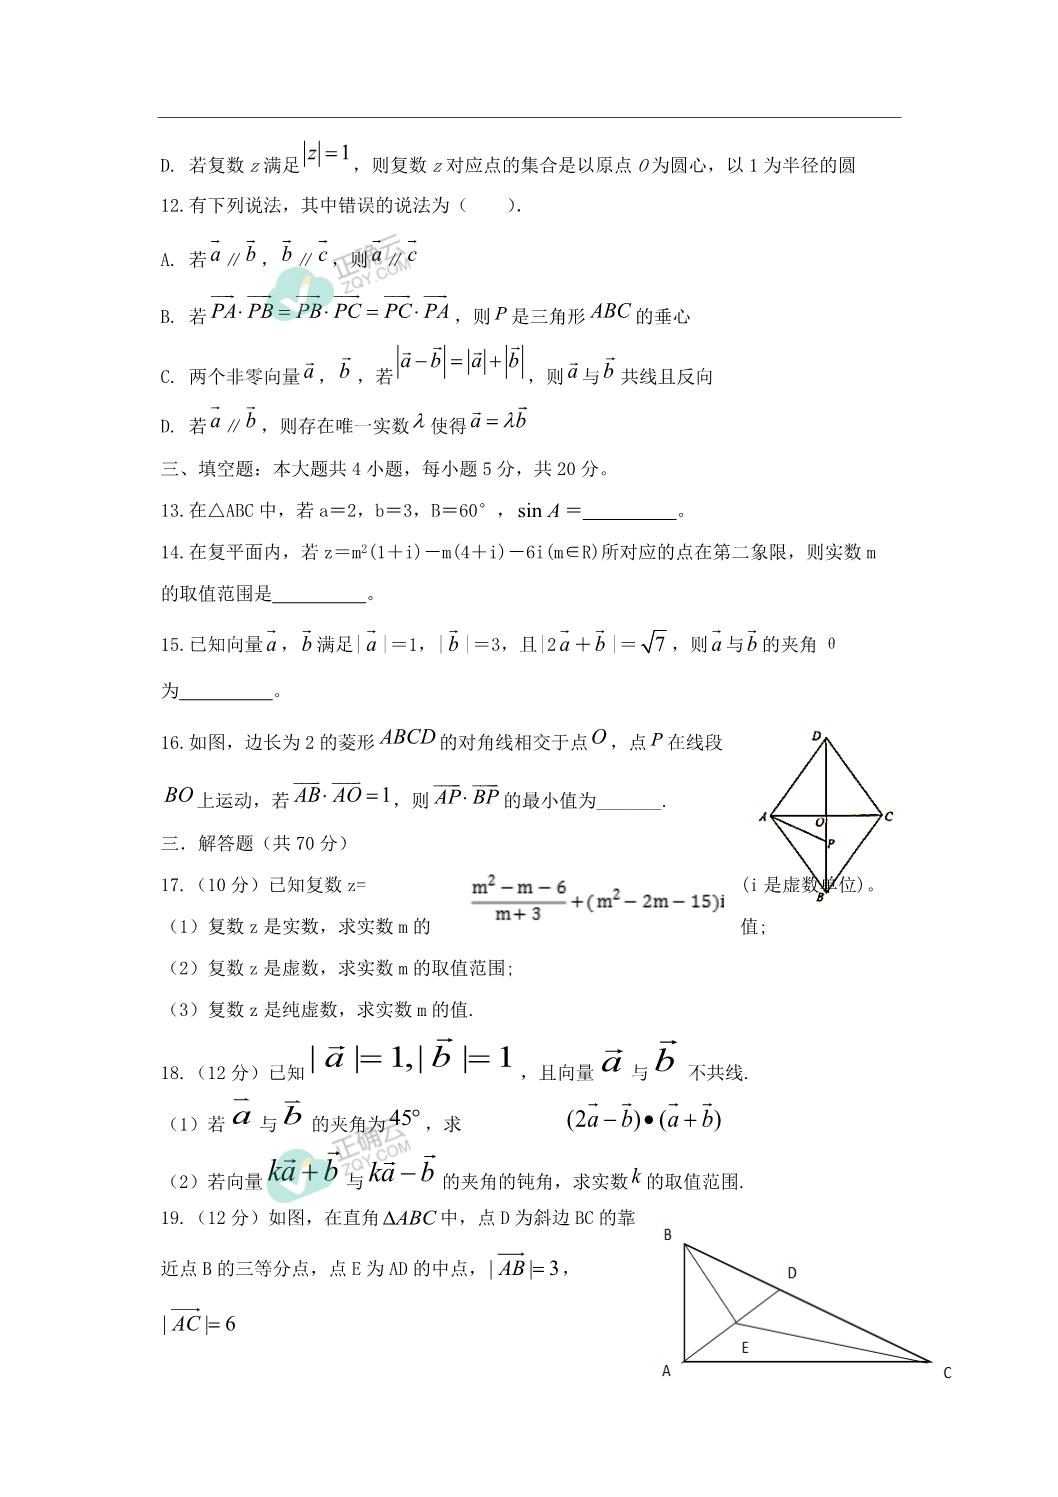 D. 若复数 z 满足|z|=1，则复数 z 对应点的集合是以原点 O 为圆心，以 1 为半径的圆
12.有下列说法，其中错误的说法为（　　）.
A. 若 a⃗ ∥ b⃗ ，b⃗ ∥ c⃗ ，则 a⃗ ∥ c⃗
正确云
ZQY.COM
B. 若 PA⃗·PB⃗=PB⃗·PC⃗=PC⃗·PA⃗ ，则 P 是三角形 ABC 的垂心
C. 两个非零向量 a⃗ ，b⃗ ，若|a⃗−b⃗|=|a⃗|+|b⃗|，则 a⃗ 与 b⃗ 共线且反向
D. 若 a⃗ ∥ b⃗ ，则存在唯一实数 λ 使得 a⃗=λb⃗
三、填空题：本大题共 4 小题，每小题 5 分，共 20 分。
13.在△ABC 中，若 a＝2，b＝3，B＝60°，sin A＝__________。
14.在复平面内，若 z＝m²(1＋i)－m(4＋i)－6i(m∈R)所对应的点在第二象限，则实数 m
的取值范围是__________。
15.已知向量 a⃗ ，b⃗ 满足|a⃗|＝1，|b⃗|＝3，且|2a⃗＋b⃗|＝√7，则 a⃗ 与 b⃗ 的夹角 θ
为__________。
16.如图，边长为 2 的菱形 ABCD 的对角线相交于点 O ，点 P 在线段
BO 上运动，若 AB⃗·AO⃗=1，则 AP⃗·BP⃗ 的最小值为_______.
D
A
O
C
P
B
三．解答题（共 70 分）
17.（10 分）已知复数 z= (m²−m−6)/(m+3)+(m²−2m−15)i (i 是虚数单位)。
（1）复数 z 是实数，求实数 m 的值;
（2）复数 z 是虚数，求实数 m 的取值范围;
（3）复数 z 是纯虚数，求实数 m 的值.
18.（12 分）已知|a⃗|=1,|b⃗|=1，且向量 a⃗ 与 b⃗ 不共线.
（1）若 a⃗ 与 b⃗ 的夹角为45°，求 (2a⃗−b⃗)•(a⃗+b⃗)
正确云
ZQY.COM
（2）若向量 ka⃗+b⃗ 与 ka⃗−b⃗ 的夹角的钝角，求实数 k 的取值范围.
19.（12 分）如图，在直角ΔABC 中，点 D 为斜边 BC 的靠
近点 B 的三等分点，点 E 为 AD 的中点，|AB⃗|=3，
|AC⃗|=6
B
D
E
A
C